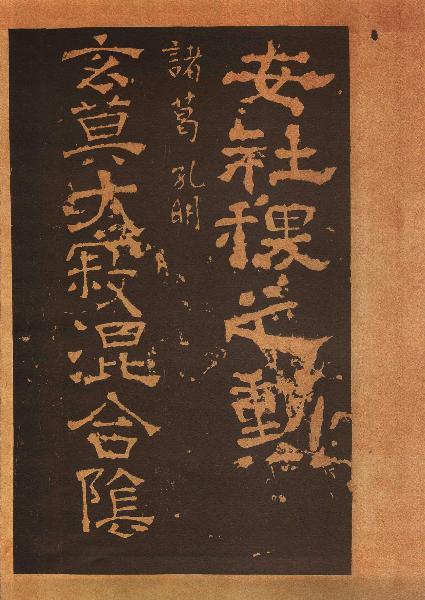 安社稷之勳
諸葛孔明
玄莫大寂混合陰